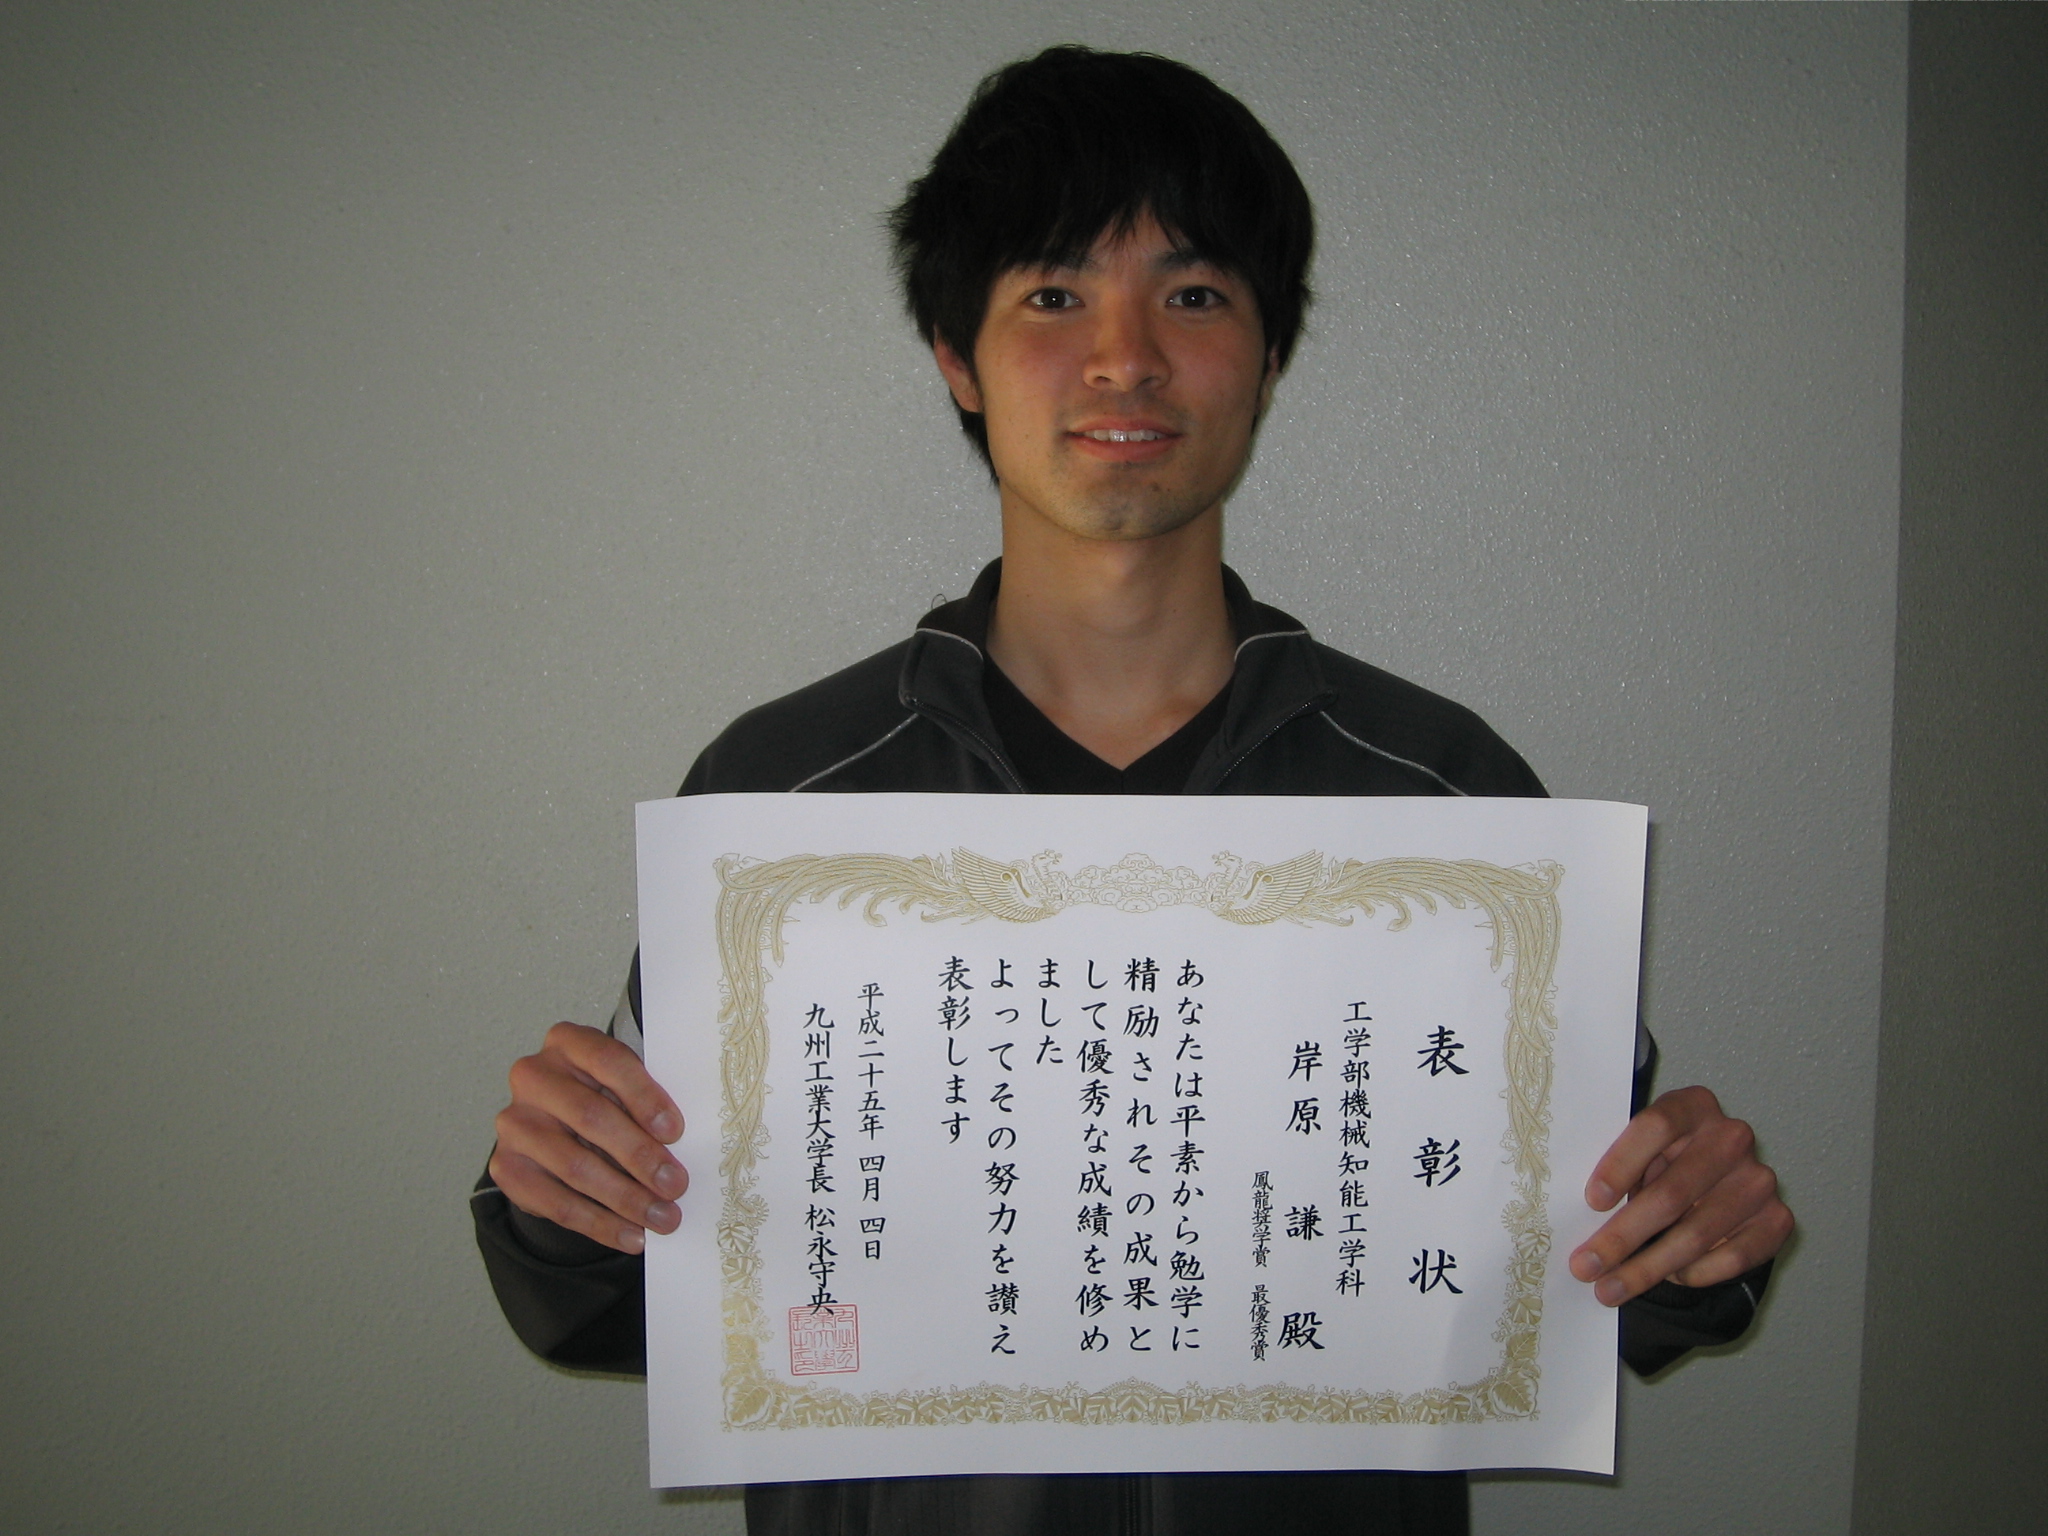 表彰状
工学部機械知能工学科
岸原 謙 殿
鳳龍奨学賞 最優秀賞
あなたは平素から勉学に
精励されその成果と
して優秀な成績を修め
ました
よってその努力を讃え
表彰します
平成二十五年 四月 四日
九州工業大学長 松永守央